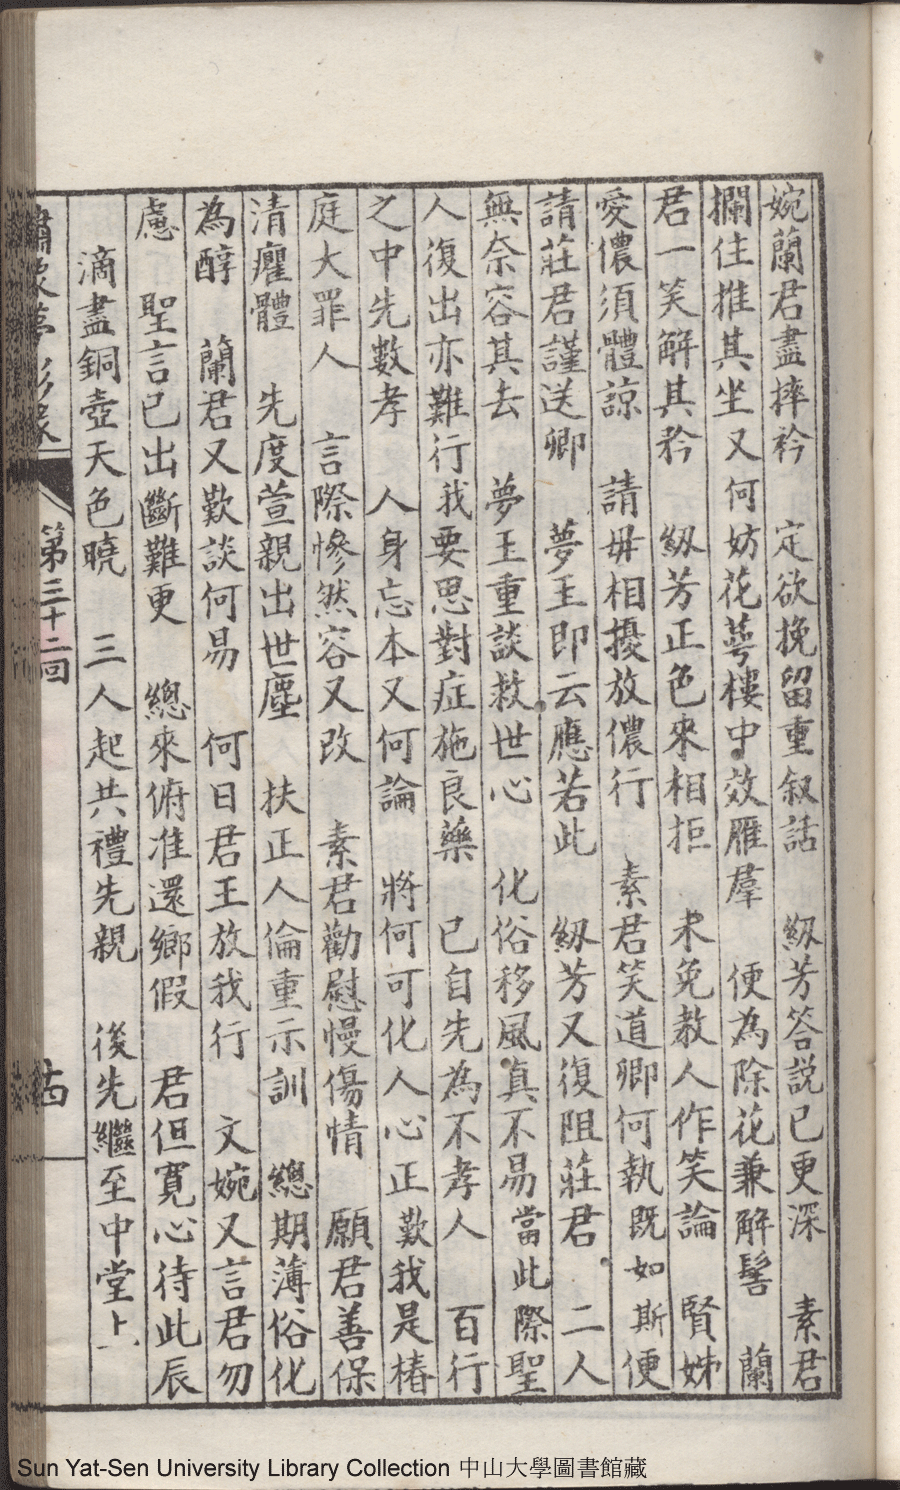 婉蘭君盡摔衿　定欲挽留重叙話　紉芳答説已更深　素君
攔住推其坐又何妨花萼樓中效雁羣　便為除花兼解髻　蘭
君一笑解其衿　紉芳正色來相拒　未免教人作笑論　賢姊
愛儂須體諒　請毋相擾放儂行　素君笑道卿何執既如斯便
請莊君謹送卿　夢玉即云應若此　紉芳又復阻莊君　二人
無奈容其去　夢玉重談救世心　化俗移風真不易當此際聖
人復出亦難行我要思對症施良藥　已自先為不孝人　百行
之中先數孝　人身忘本又何論　將何可化人心正歎我是椿
庭大罪人　言際慘然容又改　素君勸慰慢傷情　願君善保
清癯體　先度萱親出世塵　扶正人倫重示訓　總期薄俗化
為醇　蘭君又歎談何易　何日君王放我行　文婉又言君勿
慮　聖言已出斷難更　總來俯准還鄉假　君但寬心待此辰
滴盡銅壺天色曉　三人起共禮先親　後先繼至中堂上
第三十二回
Sun Yat-Sen University Library Collection 中山大學圖書館藏